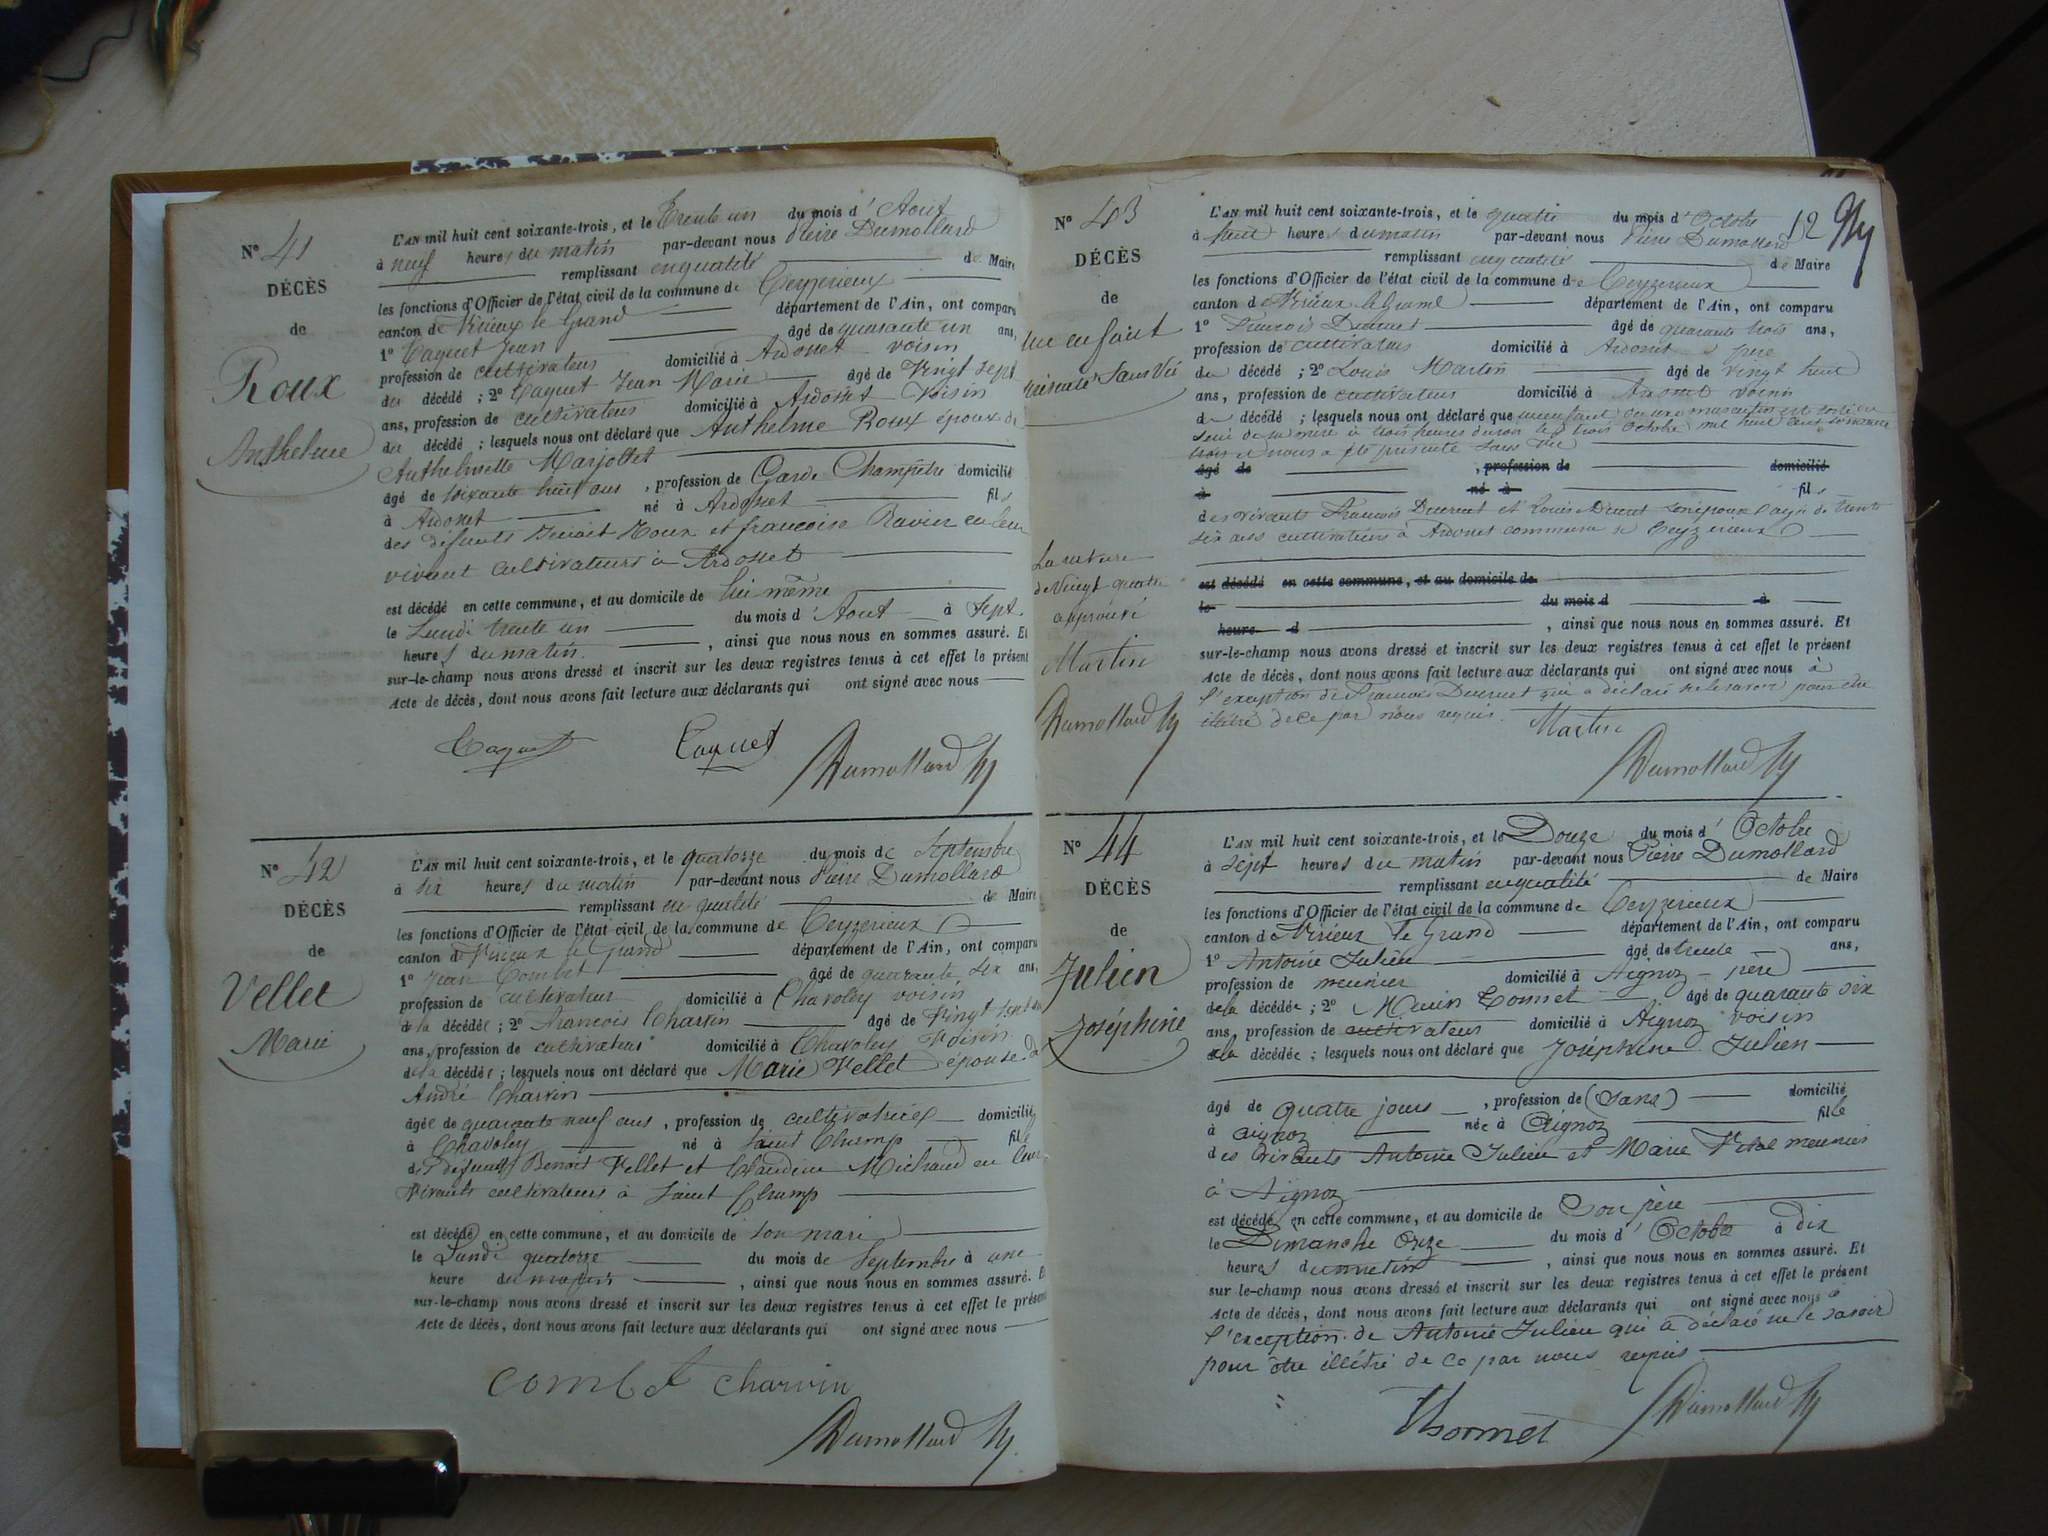 N° 41
DÉCÈS
de
Roux
Anthelme
L'AN mil huit cent soixante-trois, et le Trente un du mois d'Aout
à neuf heures du matin par-devant nous Pierre Dumollard
remplissant en qualité de Maire
les fonctions d'Officier de l'état civil de la commune de Ceyzerieux
canton de Virieux le Grand département de l'Ain, ont comparu
1° Caquet Jean âgé de quarante un ans,
profession de cultivateur domicilié à Ardosset voisin
du décédé ; 2° Caquet Jean Marie âgé de Vingt sept
ans, profession de cultivateur domicilié à Ardosset Voisin
du décédé ; lesquels nous ont déclaré que Anthelme Roux époux de
Anthelmette Marjollet
âgé de soixante huit ans, profession de Garde Champêtre domicilié
à Ardosset né à Ardosset fils
des défunts Benoit Roux et francoise Ravier en leur
vivant cultivateurs à Ardosset
est décédé en cette commune, et au domicile de lui même
le Lundi trente un du mois d'Aout à Sept
heures du matin, ainsi que nous nous en sommes assuré. Et
sur-le-champ nous avons dressé et inscrit sur les deux registres tenus à cet effet le présent
Acte de décès, dont nous avons fait lecture aux déclarants qui ont signé avec nous
Caquet Caquet
Dumollard
N° 42
DÉCÈS
de
Vellet
Marie
L'AN mil huit cent soixante-trois, et le quatorze du mois de Septembre
à six heures du matin par-devant nous Pierre Dumollard
remplissant en qualité de Maire
les fonctions d'Officier de l'état civil de la commune de Ceyzerieux
canton de Virieux le Grand département de l'Ain, ont comparu
1° Jean Combet âgé de quarante six ans,
profession de cultivateur domicilié à Chavoley voisin
de la décédée ; 2° francois Charvin âgé de Vingt sept
ans, profession de cultivateur domicilié à Chavoley Voisin
de la décédée ; lesquels nous ont déclaré que Marie Vellet épouse d
André Charvin
âgée de quarante neuf ans, profession de cultivatrice domicilié
à Chavoley né à Saint Champ fille
des défunts Benoit Vellet et Claudine Michaud en leur
Vivants cultivateurs à Saint Champ
est décédé en cette commune, et au domicile de son mari
le Lundi quatorze du mois de Septembre à une
heure du matin, ainsi que nous nous en sommes assuré. Et
sur-le-champ nous avons dressé et inscrit sur les deux registres tenus à cet effet le présent
Acte de décès, dont nous avons fait lecture aux déclarants qui ont signé avec nous
combet charvin
Dumollard
12
N° 43
DÉCÈS
de
un enfant
présenté Sans Vie
L'AN mil huit cent soixante-trois, et le quatre du mois d'Octobre
à huit heures du matin par-devant nous Pierre Dumollard
remplissant en qualité de Maire
les fonctions d'Officier de l'état civil de la commune de Ceyzerieux
canton de Virieux le Grand département de l'Ain, ont comparu
1° Francois Ducruet âgé de quarante trois ans,
profession de cultivateur domicilié à Ardosset père
du décédé ; 2° Louis Martin âgé de Vingt huit
ans, profession de cultivateur domicilié à Ardosset voisin
de décédé ; lesquels nous ont déclaré que un enfant du sexe masculin est sorti du
sein de sa mère à trois heures du soir le trois Octobre mil huit cent soixante
trois et nous a été présenté Sans Vie
âgé de , profession de domicilié
à né à fils
des vivants Francois Ducruet et son épouse âgée de trente
six ans cultivateurs à Ardosset commune de Ceyzerieux
est décédé en cette commune, et au domicile de
le du mois d à
heure d , ainsi que nous nous en sommes assuré. Et
sur-le-champ nous avons dressé et inscrit sur les deux registres tenus à cet effet le présent
Acte de décès, dont nous avons fait lecture aux déclarants qui ont signé avec nous à
l'exception de Francois Ducruet qui a déclaré ne le savoir pour être
illétré de ce par nous requis.
Martin
Dumollard
La rature
de Vingt quatre
approuvé
Martin
Dumollard
N° 44
DÉCÈS
de
Julien
Joséphine
L'AN mil huit cent soixante-trois, et le Douze du mois d'Octobre
à sept heures du matin par-devant nous Pierre Dumollard
remplissant en qualité de Maire
les fonctions d'Officier de l'état civil de la commune de Ceyzerieux
canton de Virieux le Grand département de l'Ain, ont comparu
1° Antoine Julien âgé de trente ans,
profession de meunier domicilié à Aignoz père
de la décédée ; 2° âgé de quarante six
ans, profession de cultivateur domicilié à Aignoz voisin
de la décédée ; lesquels nous ont déclaré que Joséphine Julien
âgé de quatre jours, profession de (Sans) domicilié
à aignoz née à Aignoz fille
des Vivants Antoine Julien et Marie Vital meunier
à Aignoz
est décédé en cette commune, et au domicile de Son père
le Dimanche Onze du mois d'Octobre à dix
heures du matin, ainsi que nous nous en sommes assuré. Et
sur-le-champ nous avons dressé et inscrit sur les deux registres tenus à cet effet le présent
Acte de décès, dont nous avons fait lecture aux déclarants qui ont signé avec nous à
l'exception de Antoine Julien qui a déclaré ne le savoir
pour être illétré de ce par nous requis.
Thomet
Dumollard